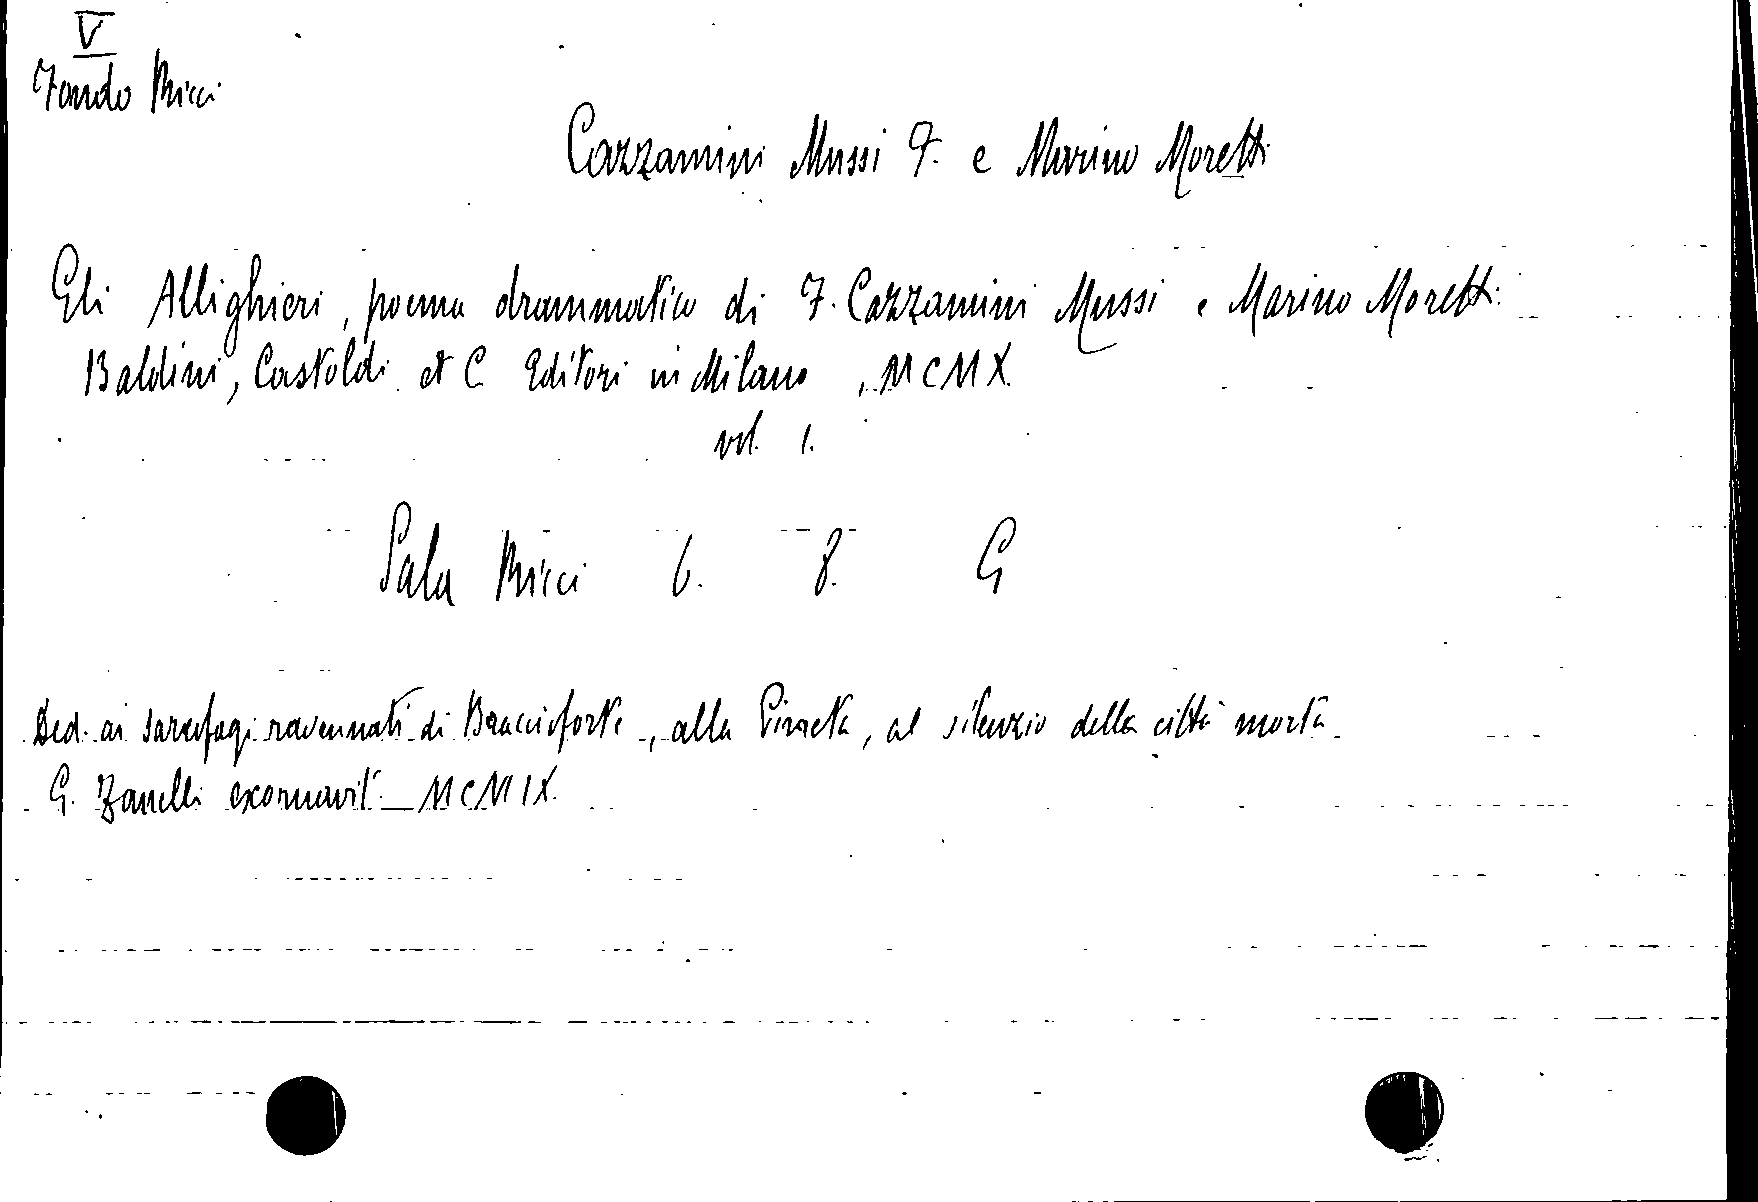 V
Fondo Ricci
Cazzamini Mussi F. e Marino Moretti
Gli Allighieri, poema drammatico di F. Cazzamini Mussi e Marino Moretti.
Baldini, Castoldi et C. Editori in Milano, MCMX.
vol. 1.
Sala Ricci 6. 8. G
Ded. ai sarcofagi ravennati di Braccioforte, alla Pineta, al silenzio della città morta.
G. Zanelli exornavit. MCMIX.